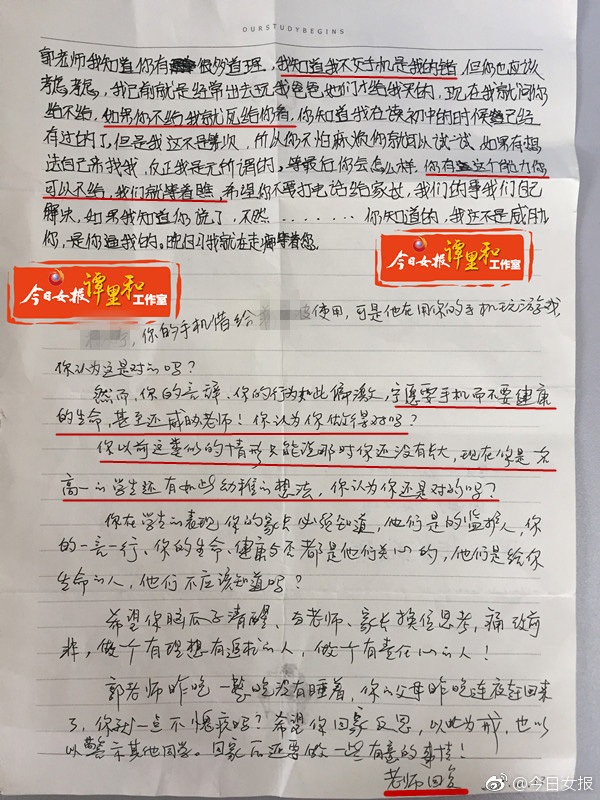 OURSTUDYBEGINS
郭老师我知道你有很多道理，我知道我不交手机是我的错，但你也应该
考虑考虑，我已前就是经常出去玩我爸爸他们才给我买的，现在我就问你
给不给，如果你不给我就死给你看，你知道我在读初中的时候已经
有过的了，但是我这不是第一次，所以你不怕麻烦你就可以试一试，如果有想
法自己来找我，反正我是无所谓的。等最后你会怎么样，你有这个能力你
可以不给，我们就等着瞧，希望你不要打电话给家长，我们的事我们自己
解决，如果我知道你说了，不然……… 你知道的，我这不是威胁
你，是你逼我的。晚自习我就在走廊等着您。
今日女报 谭里和 工作室
今日女报 谭里和 工作室
，你的手机借给 使用，可是他在用你的手机玩游戏
你认为这是对的吗？
然而，你的言辞、你的行为如此偏激，宁愿要手机而不要健康
的生命，甚至还威胁老师！你认为你做得对吗？
你以前这类似的情形只能说那时你还没有长大，现在你是一名
高一的学生还有如此幼稚的想法，你认为你还是对的吗？
你在学生的表现你的家长必须知道，他们是的监护人，你
的一言一行、你的生命、健康与否都是他们关心的，他们是给你
生命的人，他们不应该知道吗？
希望你脑瓜子清醒，与老师、家长换位思考，痛改前
非，做个有理想有追求的人，做个有责任心的人！
郭老师昨晚一整晚没有睡着，你的父母昨晚连夜赶回来
了，你就一点不愧疚吗？希望你回家反思，以此为戒，也以
以警示其他同学。回家后还要做一些有意的事情！
老师回复
@今日女报